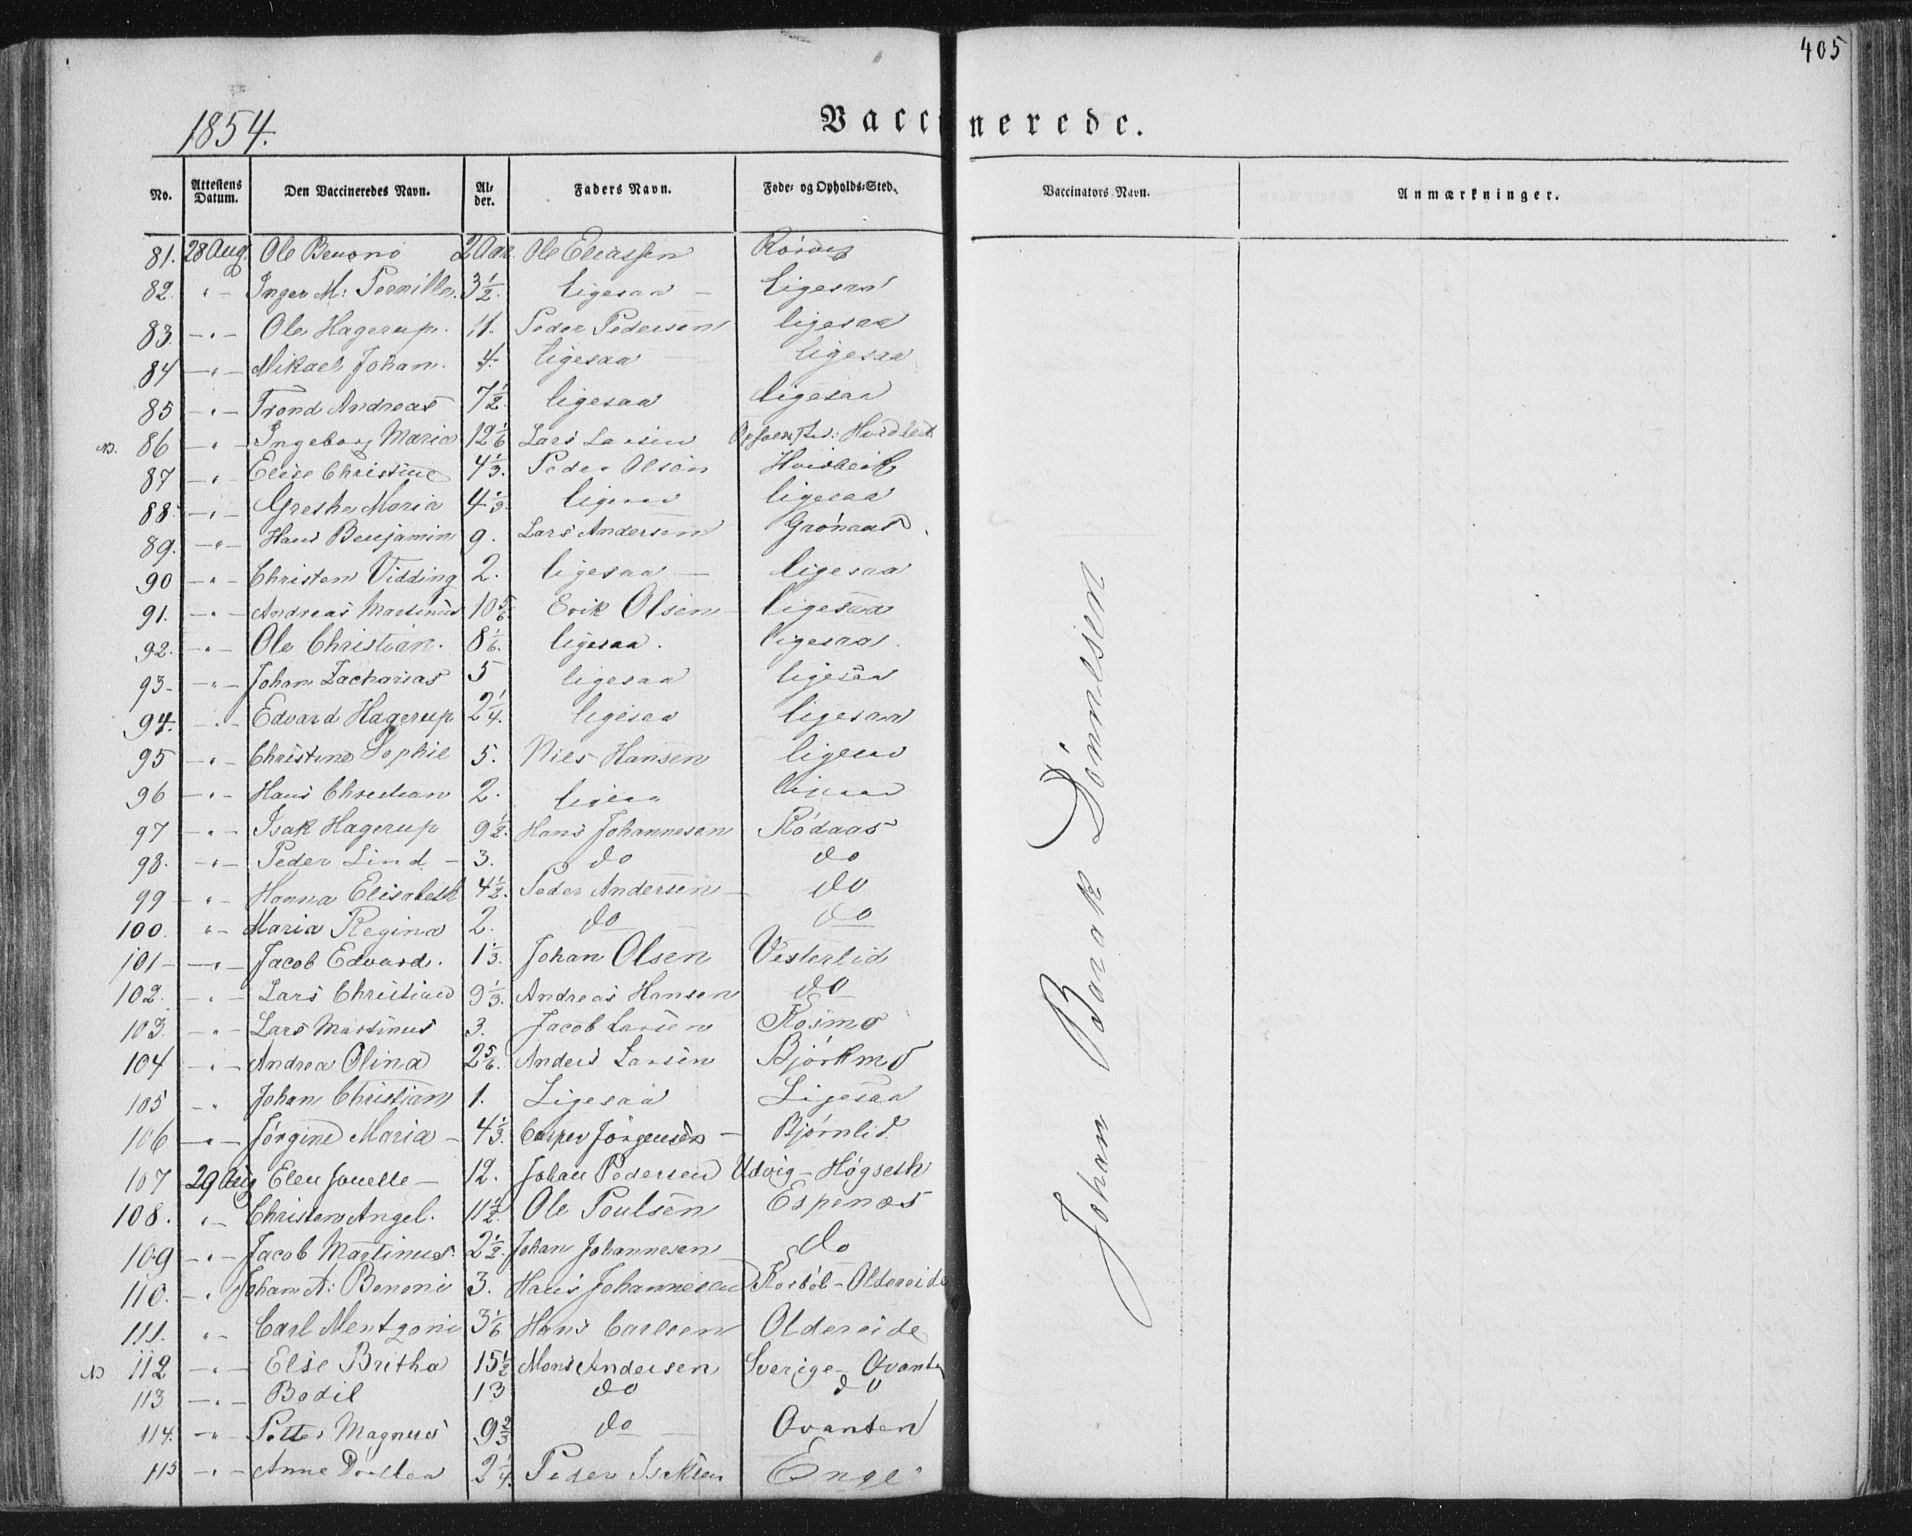 405
1854.
Vaccinerede.
No. Attestens Datum. Den Vaccineredes Navn. Al-der. Faders Navn. Føde- og Opholds-Sted. Vaccinators Navn. Anmærkninger.
81. 28 Aug Ole Benoni 2 Aar. Ole Eliassen
82. " - Inger M: Pernille. 3½. ligesaa - ligesaa
83. - " - Ole Hagerup. 11. Peder Pedersen ligesaa
84 - " - Mikael Johan. 4. ligesaa ligesaa
85 - " - Trond Andreas 7½. ligesaa ligesaa
86 - " - Ingeborg Maria 12 1/6 Lars Larsen
87 - " Elise Christine 4⅓. Peder Olsen
88 - " - Gretha Maria 4⅓. ligesaa ligesaa
89. - " - Hans Benjamin 9. Lars Andersen Grönaas
90 - " - Christen Vidding 2. ligesaa - ligesaa
91. - " - Andreas Martinus 10 5/6. Erik Olsen - ligesaa
92. - " - Ole Christian. 8 1/6. ligesaa. ligesaa.
93 - - " - Johan Zacharias 5 ligesaa ligesaa
94. - " - Edvard Hagerup 2¼. ligesaa ligesaa
95 - " - Christine Sophie 5. Niels Hansen ligesaa
96 - " - Hans Christian 2. ligesaa ligesaa
97 - " - Isak Hagerup 9½. Hans Johannesen Rödaas
98. - " - Peder Lind - 3. do do
99 - " - Hanna Elisabeth 4½. Peder Andersen - do
100. " - Maria Regina 2. do do
101 - - " - Jacob Edvard. 1⅓. Johan Olsen Vesterlid
102. - " - Lars Christian 9⅓. Andreas Hansen do
103. - " - Lars Martinus 3. Jacob Larsen Rosmo
104 - " - Andrea Olina 2 5/6. Anders Larsen Björkmo
105 - " Johan Christian 1. Ligesaa Ligesaa
106 - " - Jörgine Maria - 4⅓. Casper Jörgensen - Bjørnlid.
107 29 Aug Elen Jonette - 12. Johan Pedersen Utvig - Høgseth
108. " - Christen Angel. 11½. Ole Poulsen Espenæs
109 - " - Jacob Martinus. 2½. Johan Johannesen do
110. - " Johan A: Benoni 3. Hans Johannesen - Oldereide
111. " - Carl Mentzoni 3 1/6 Hans Carlsen Oldereide
112 - " - Else Britha 15½ Mons Andersen Sverige - Qvanten
113 - " - Bodil 13 do do
114. - " Petter Magnus 9⅔ do - Qvanten
115 - " - Anne Dorthea 2¼. Peder Isaksen Enge
Johan Barak Dönnesen